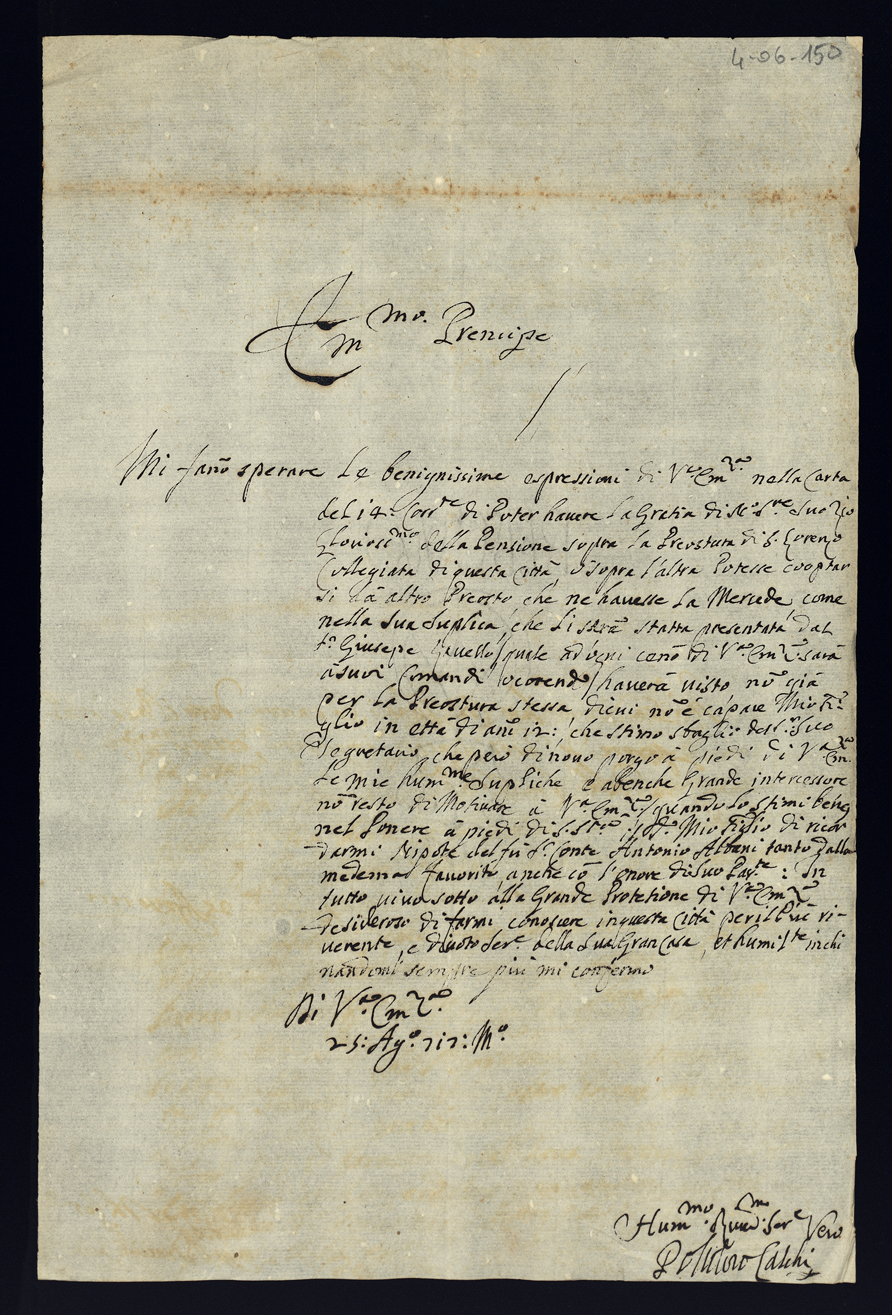 4-06-150
Em.mo Prencipe
Mi fanõ sperare Le benignissime espressioni di V.a Em.za nella Carta
del 14. Corr.te di Poter havere La Gratia di N.o S.re Suo Zio
Glorios.mo della Pensione sopra La Preostura di S. Lorenzo
Collegiata di questa Città, ò sopra l'altra Potesse cooptar
si da altro Preosto che ne havesse La Mercede come
nella Sua Suplica, che Li sarà statta presentata dal
Giusepe quale ad ogni cenõ di V.a Em.za sarà
à suoi Comandi ocorendo / haverà visto nõ già
per La Preostura stessa di cui nõ è capace Mio Fi
glio in età di ani 12: che stimo sbaglio del Suo
Segretario, che però di novo porgo à piedi di V.a Em.za
Le mie hum.me Supliche e abenche Grande intercessore
nõ resto di Motivare à V.a Em.za / quando Lo stimi bene
nel Ponere à piedi di S. S.tà Mio Figlio di ricor
darmi Nipote del fù S.r Conte Antonio Albani tanto dalla
medema favorito anche cõ l'onore di suo : In
tutto vivo sotto alla Grande Protetione di V.a Em.za
desideroso di farmi conoscere in questa Città per il Più ri-
verente, e divoto Ser.e della Sua Gran Casa, et humil.te inchi
nandomi sempre più mi confermo
Di V.a Em.za
25: Ag.o 712: M.o
Hum.mo Ser.e Vero
Polidoro Calchi